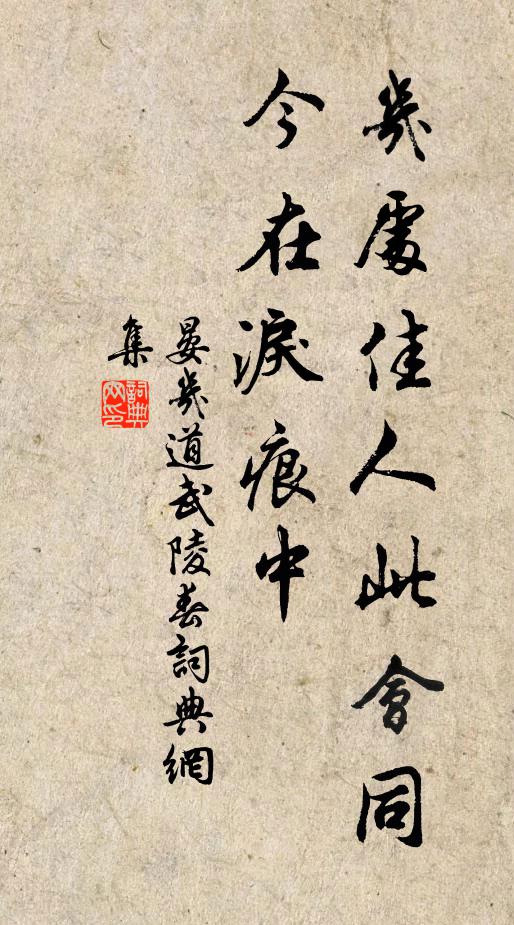 幾處佳人此會同
今在淚痕中
晏幾道武陵春詞典網
集
詞典
网印